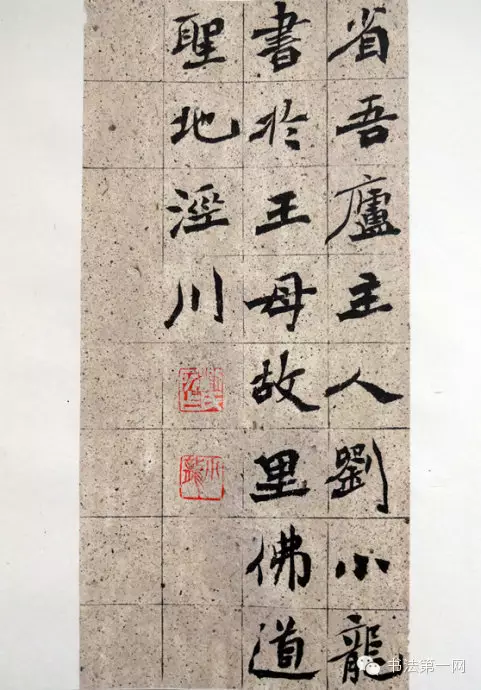 省吾廬主人劉小龍
書於王母故里佛道
聖地涇川
小龍
书法第一网